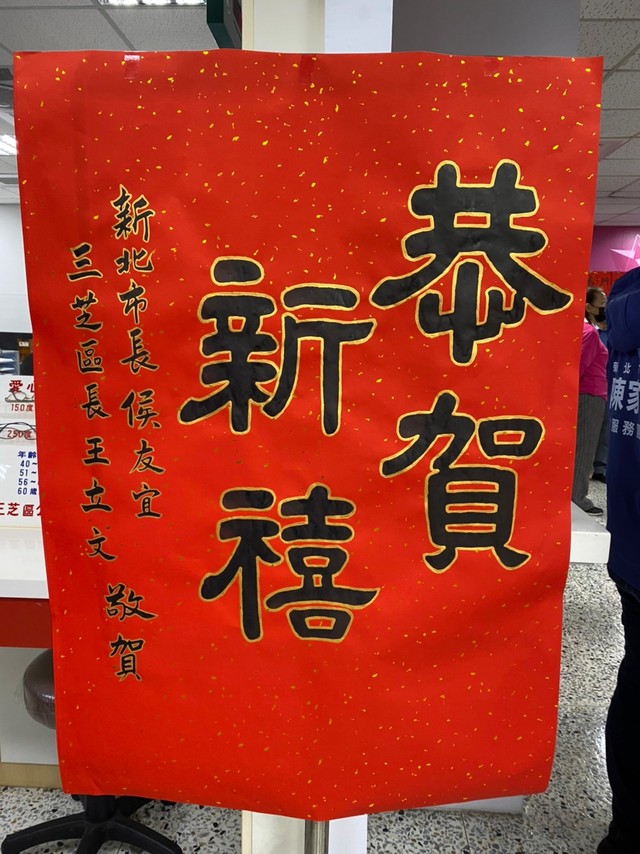 恭賀
新禧
新北市長侯友宜
三芝區長王立文
敬賀
愛心
150度
250度
年齡
40~
51~
56~
60歲
三芝區
新北
陳家
服務